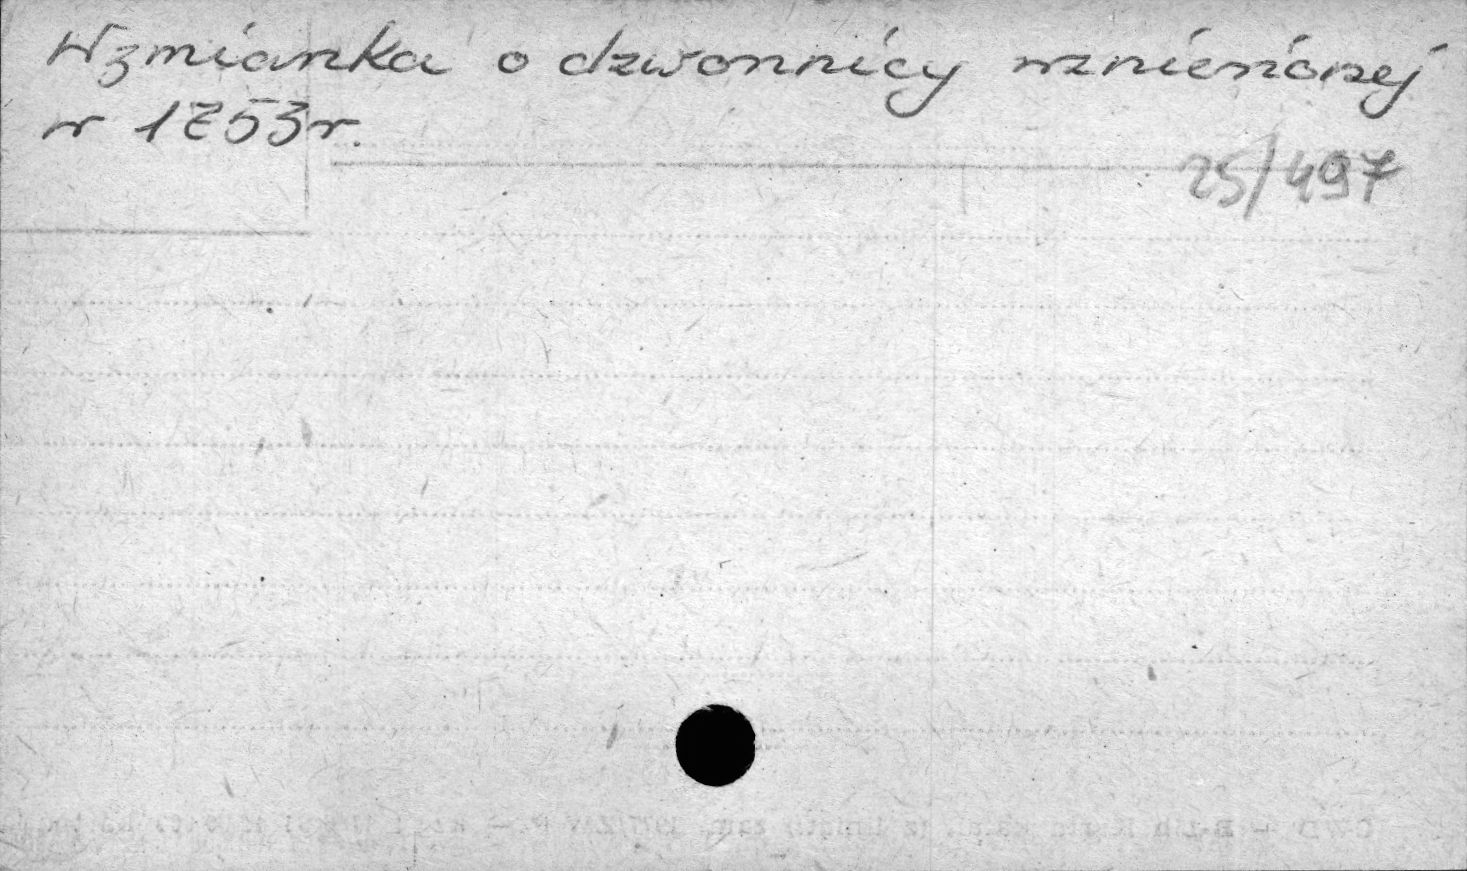 Wzmianka o dzwonnicy wzniesionej
w 1753 r.
25/497